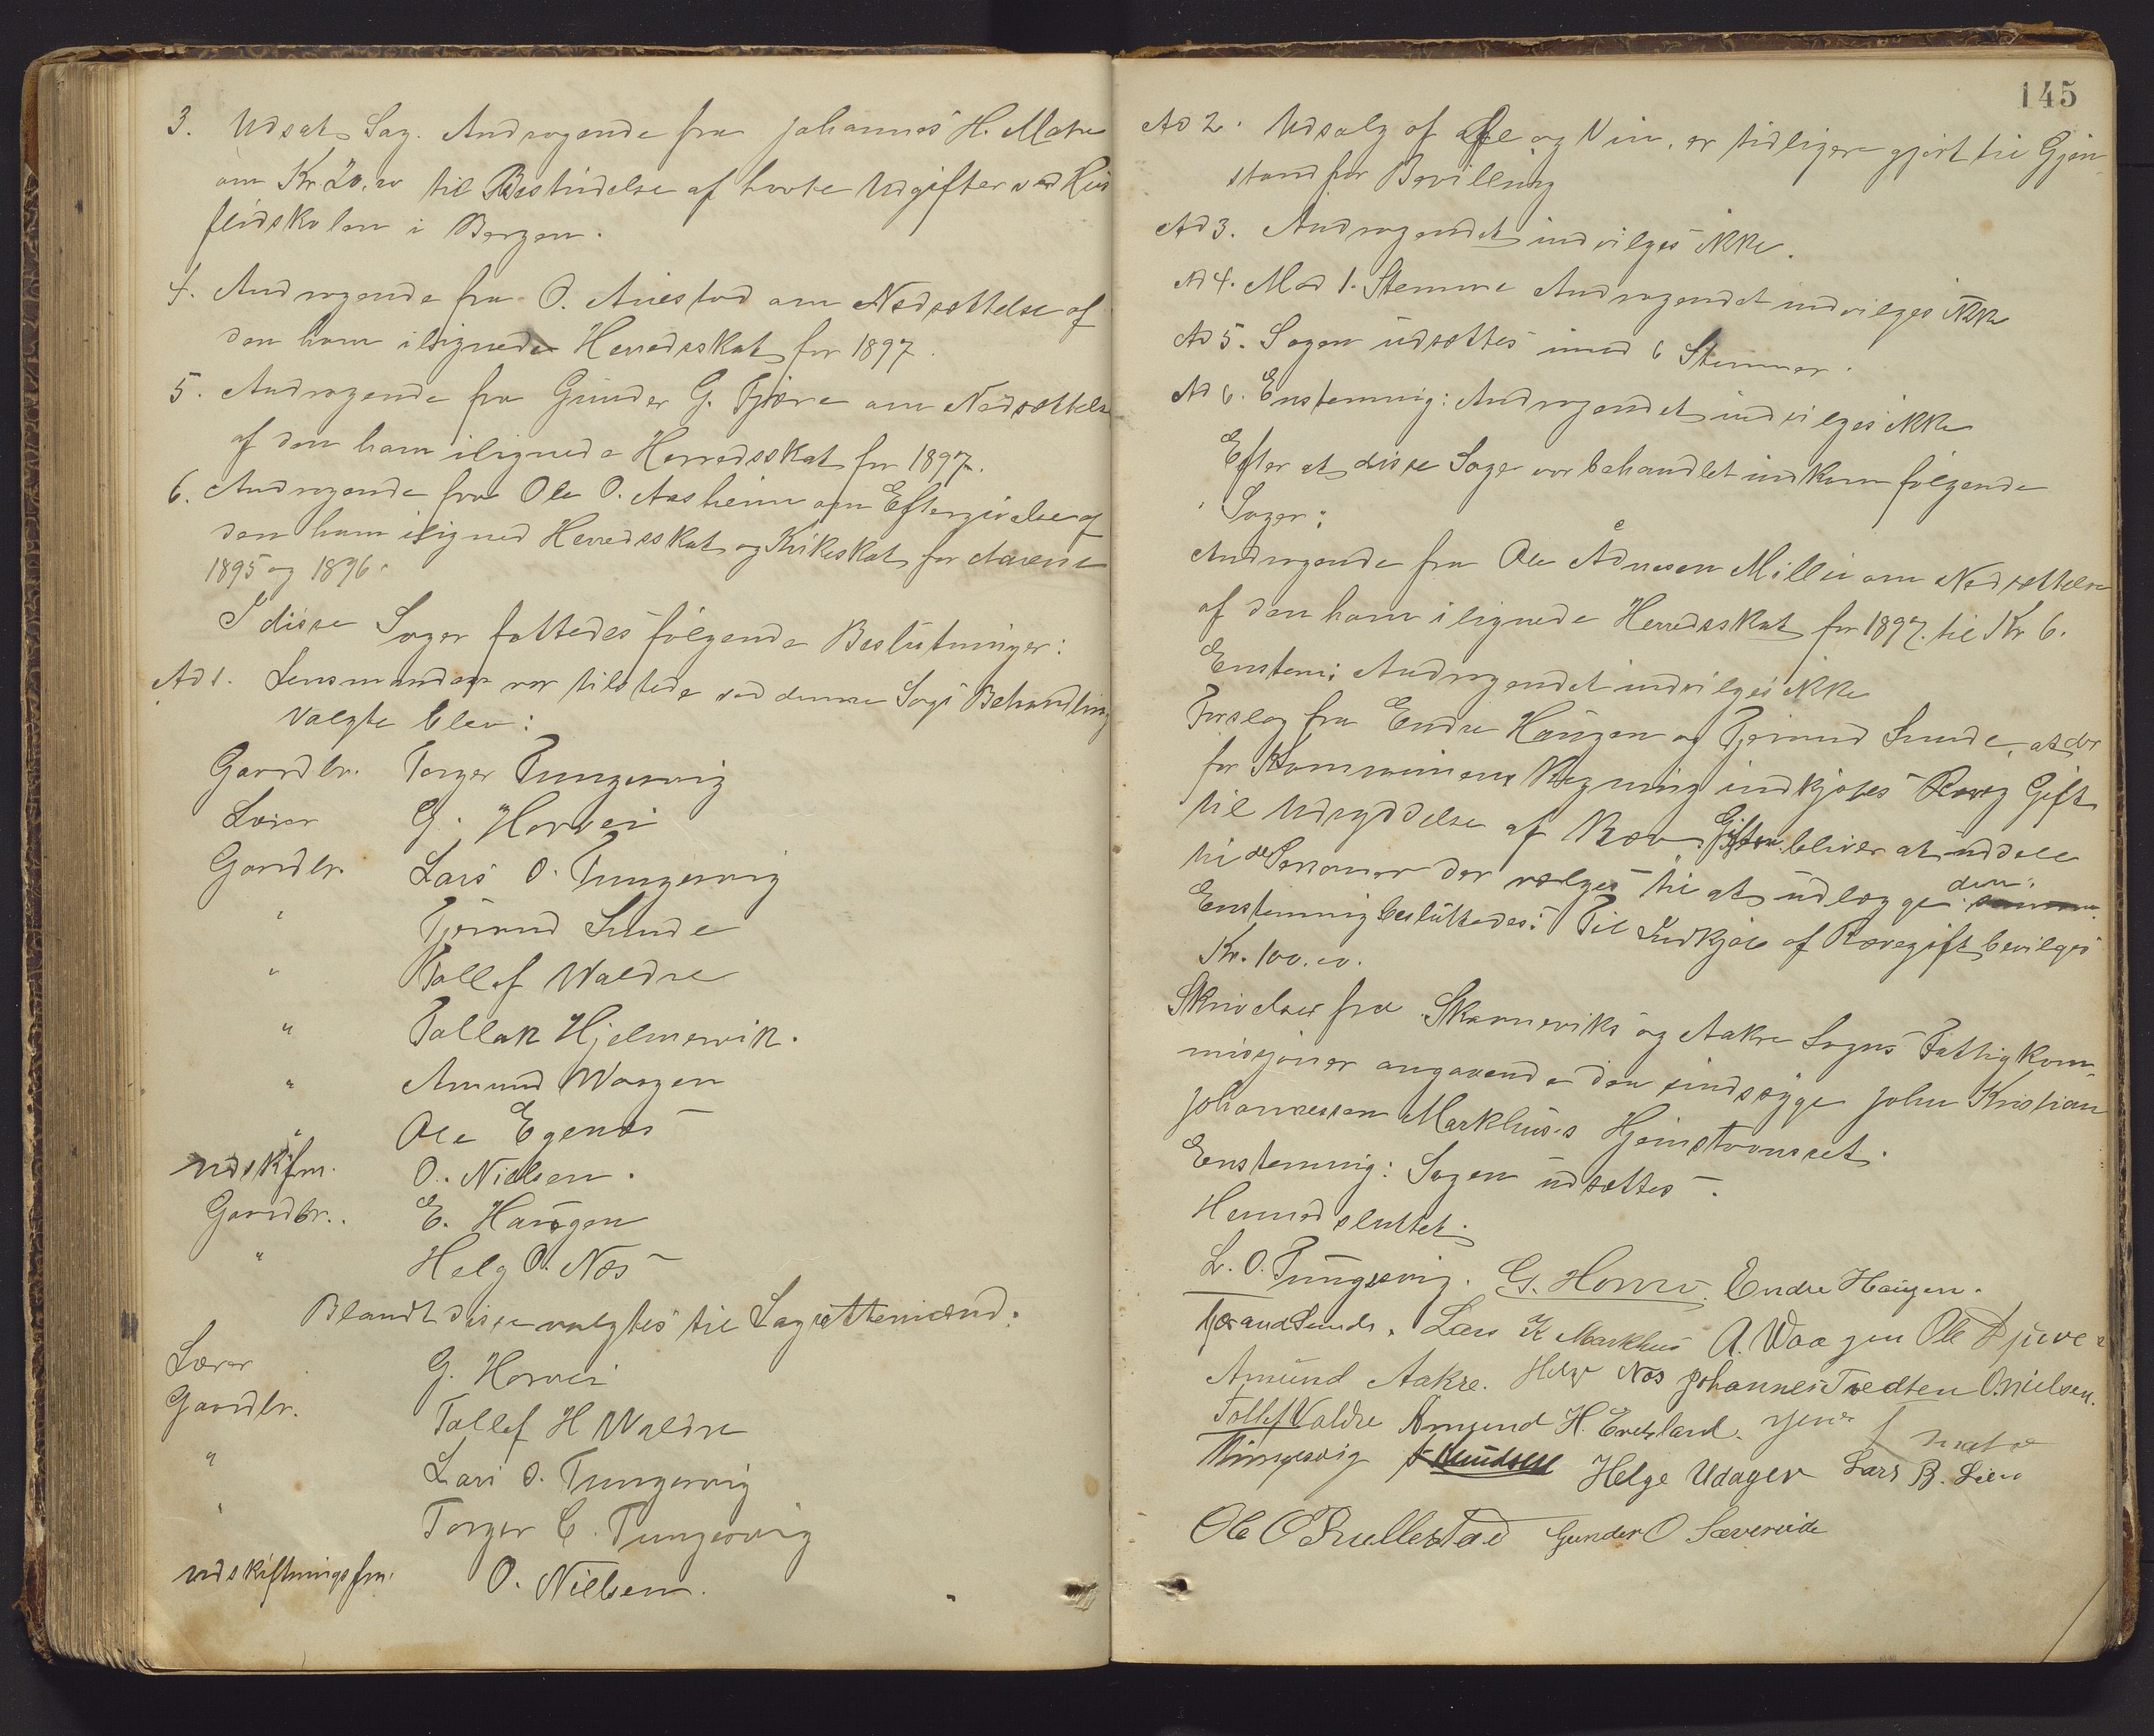 3. Udsat Sag. Andragende fra Johannes H. Matre
om Kr. 20,00 til Bestridelse af havte Udgifter ved Hus
flidskolen i Bergen.
4. Andragende fra O. Auestad om Nedsættelse af
den ham ilignede Herredsskat for 1897.
5. Andragende fra Gunder G. Tjære om Nedsættelse
af den ham ilignede Herredsskat for 1897.
6. Andragende fra Ole O. Aasheim om Eftergivelse af
den ham iligned Herredsskat og Kirkeskat for Aarene
1895 og 1896.
I disse Sager fattedes følgende Beslutninger:
Ad 1. Lensmanden var tilstede ved denne Sags Behandling
Valgte blev:
Gaardbr. Torger Tungesvig
Lærer G. Horvei
Gardbr. Lars O. Tungesvig
" Tjerand Sunde
" Tollef Waldre
" Tallak Hjelmervik.
" Amund Waagen
" Ole Egenæs
Udskifm. O. Nielsen.
Gaardbr.. E. Haugen
" Helg O. Næs
Blandt disse valgtes til Lagrettemænd:
Lærer G. Horvei
Gaardbr. Tollef H Waldre
" Lars O. Tungesvig
" Torger C. Tungesvig
Udskiftningsfm. O. Nielsen.
145
Ad 2. Udsalg af Øl og Vin, er tidligere gjort til Gjen-
stand for Bevilling
Ad 3. Andragendet indvilges ikke.
Ad 4. Mod 1. Stemme Andragendet indvilges ikke
Ad 5. Sagen udsættes imod 6 Stemmer.
Ad 6. Enstemmig: Andragendet indvilges ikke
Efter at disse Sager var behandlet indkom følgende
Sager:
Andragende fra Ole Ådnesen Millie om Nedsættelse
af den ham ilignede Herredsskat for 1897 til Kr 6.
Enstem: Andragendet indvilges ikke
Forslag fra Endre Haugen og Tjerand Sunde, at der
for Kommunens Regning indkjøbes Ræv Gift
til Udryddelse af Ræv. Giften bliver at uddele
til de Personer der vælges til at udlægge den.
Enstemmig besluttedes: Til Indkjøb af Rævegift bevilges
Kr. 100.00.
Skrivelser fra Skaaneviks og Aakre Sogns Fattigkom-
misjoner angaaende den sindssyge John Kristian
Johannessen Markhus's Hjemstavnsret.
Enstemmig: Sagen udsættes.
Hermed sluttet.
L. O. Tungesvig. G. Horvei. Endre Haugen.
Tjerand Sunde. Lars K Markhus A. Waagen Ole Tjære
Amund Aakre. Helge Næs Johannes Tvedten O. Nielsen.
Tollef Valdre Amund H. Everland. Matre
Mungesvig Knudsen Helge Udager Lars B. Lien
Ole O Bullestad Gunder O Sævereide